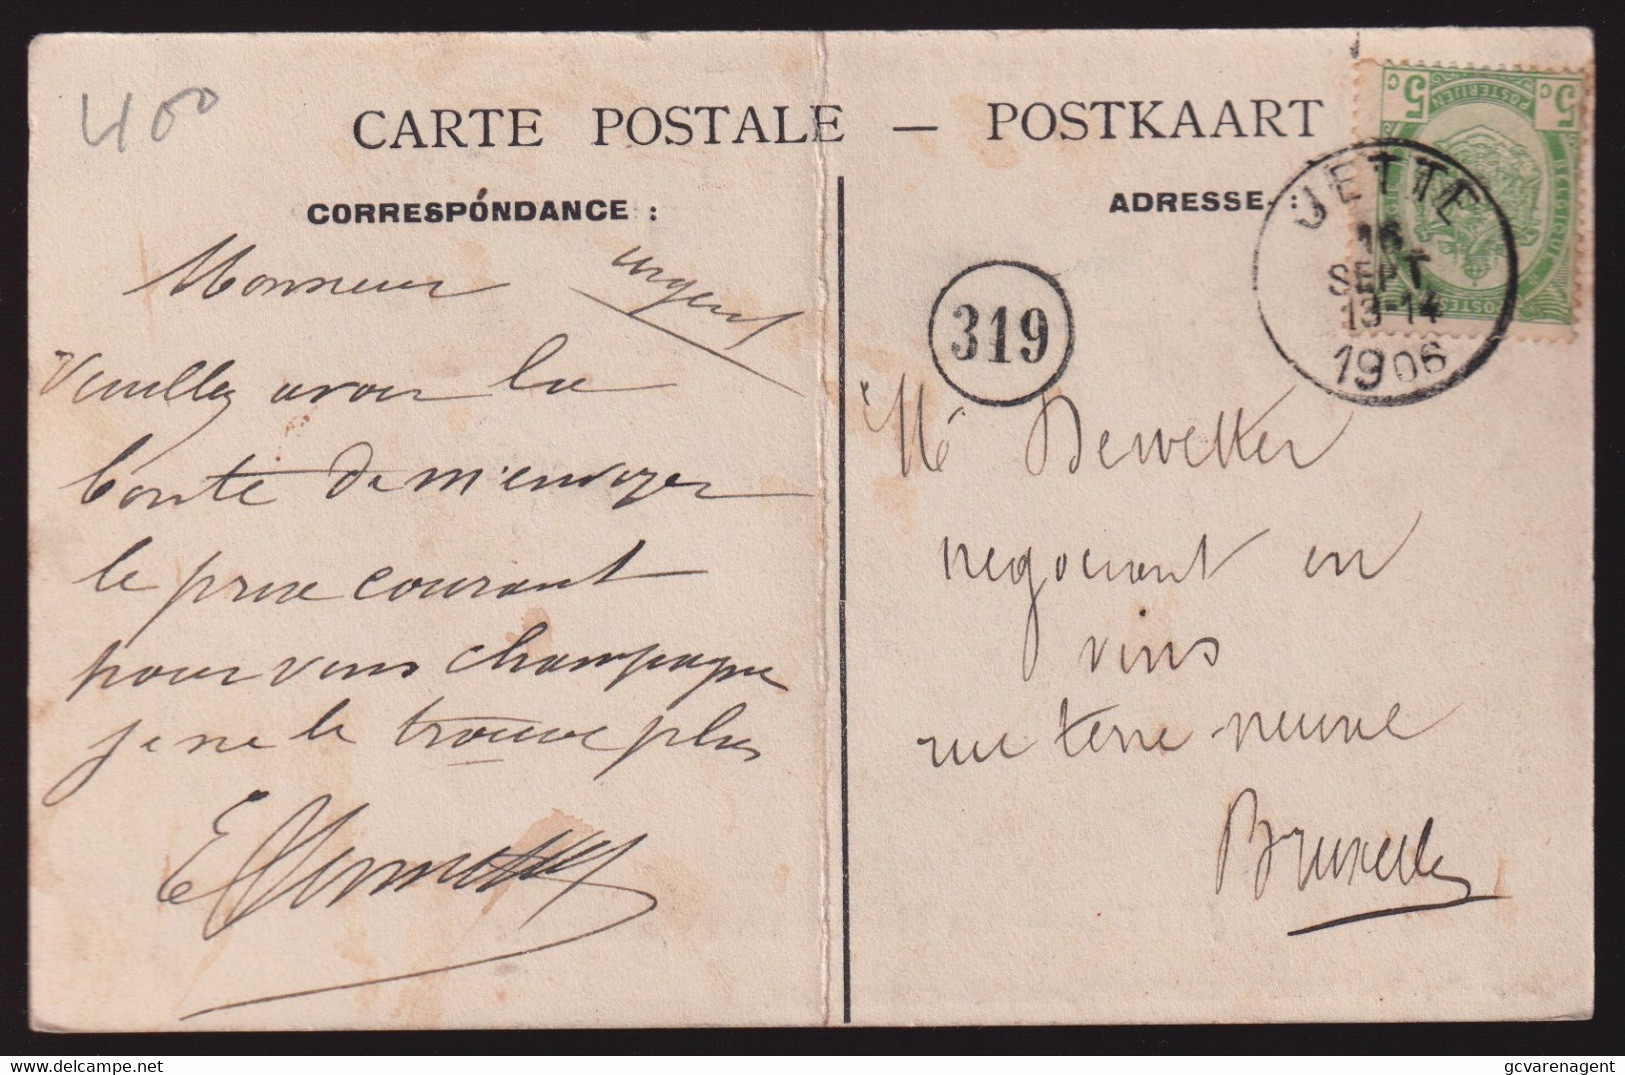 400
CARTE POSTALE — POSTKAART
CORRESPÓNDANCE :
ADRESSE :
Monsieur urgent
Veuillez avoir la
bonté de m'envoyer
le prix courant
pour vins champagne
je ne le trouve plus
319
JETTE
16
SEPT
13-14
1906
5c 5c
POSTERIJEN
BELGIQUE
POSTES
Mr Dewetter
negociant en
vins
rue terre neuve
Bruxelles
gcvarenagent